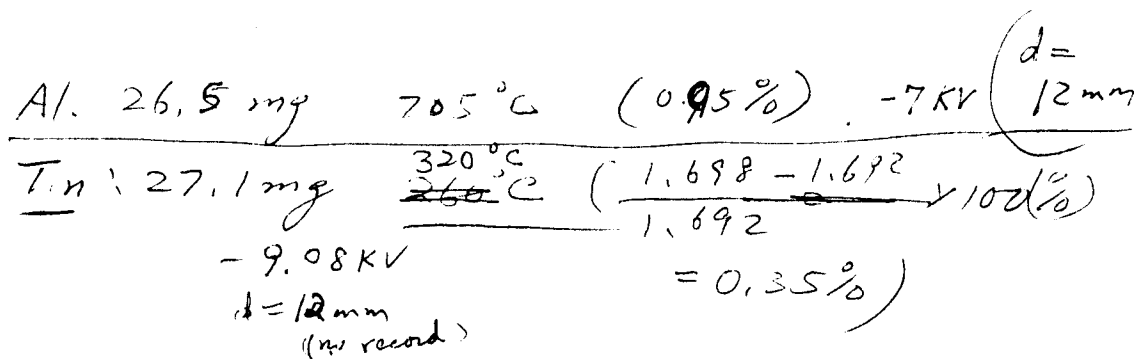 Al. 26.5 mg 705°C (0.95%). -7KV (d = 12mm
Tin: 27.1mg 320°C (1.698 - 1.692 / 1.692 × 100(%)
260°C
-9.08KV = 0.35%)
d = 12mm
(no record)